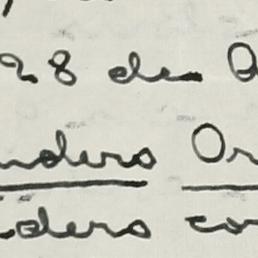 28 de
ndero Or
idero co